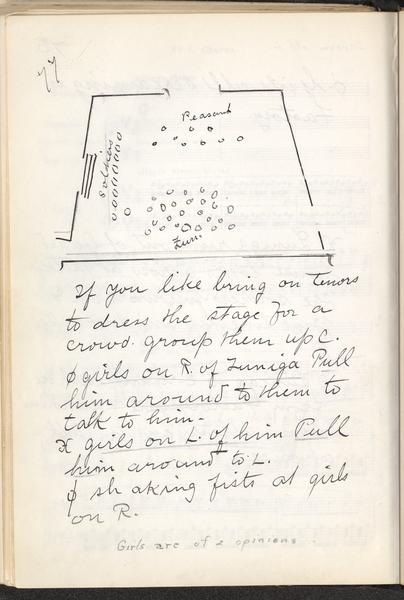 77
Peasants
Soldiers
Zun.
If you like bring on Tenors
to dress the stage for a
crowd. group them up C.
ϕ girls on R. of Zuniga Pull
him around to them to
talk to him-
X girls on L. of him Pull
him around to L.
ϕ shaking fists at girls
on R.
Girls are of 2 opinions.